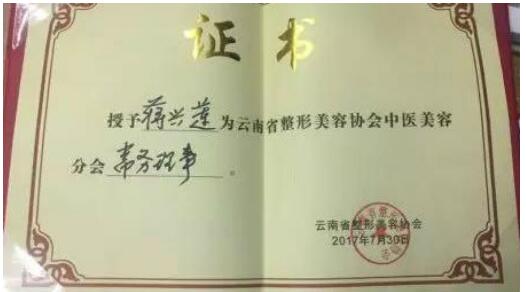 证书
授予蒋兴莲为云南省整形美容协会中医美容
分会常务理事。
云南省整形美容协会
2017年7月30日